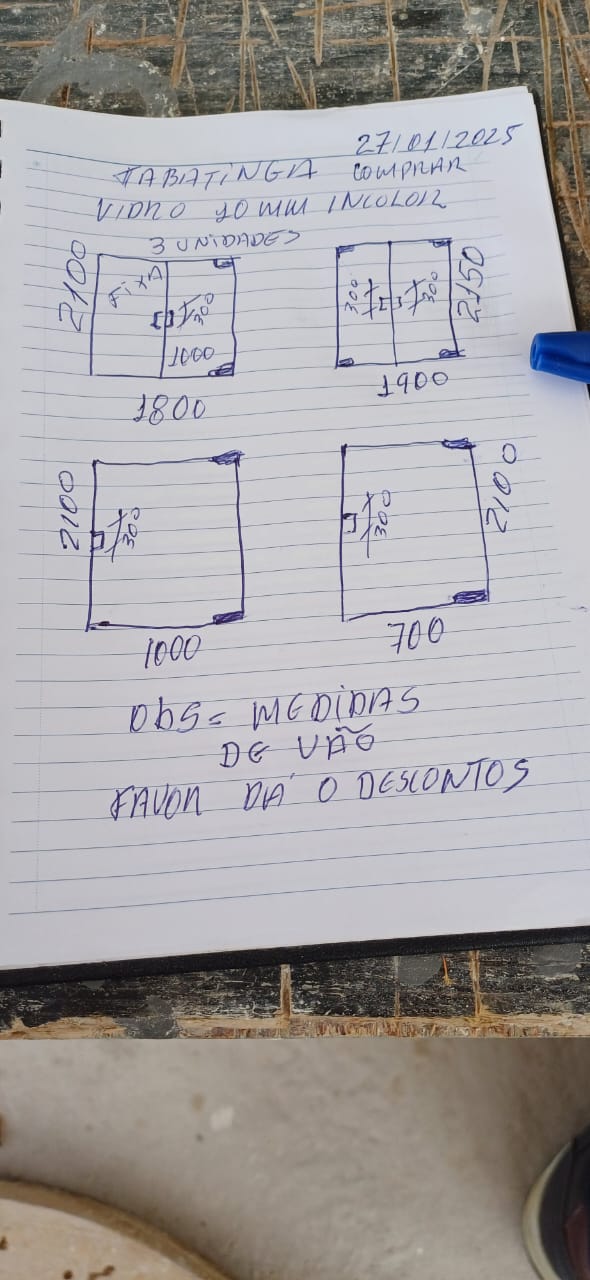 27/01/2025
TABATINGA COMPRAR
VIDRO 10 MM INCOLOR
3 UNIDADES
2100
FixA
300
1000
1800
300
300
2150
1900
2100
300
1000
300
2100
700
Obs = MEDIDAS
DE VÃO
FAVOR DÁ O DESCONTOS